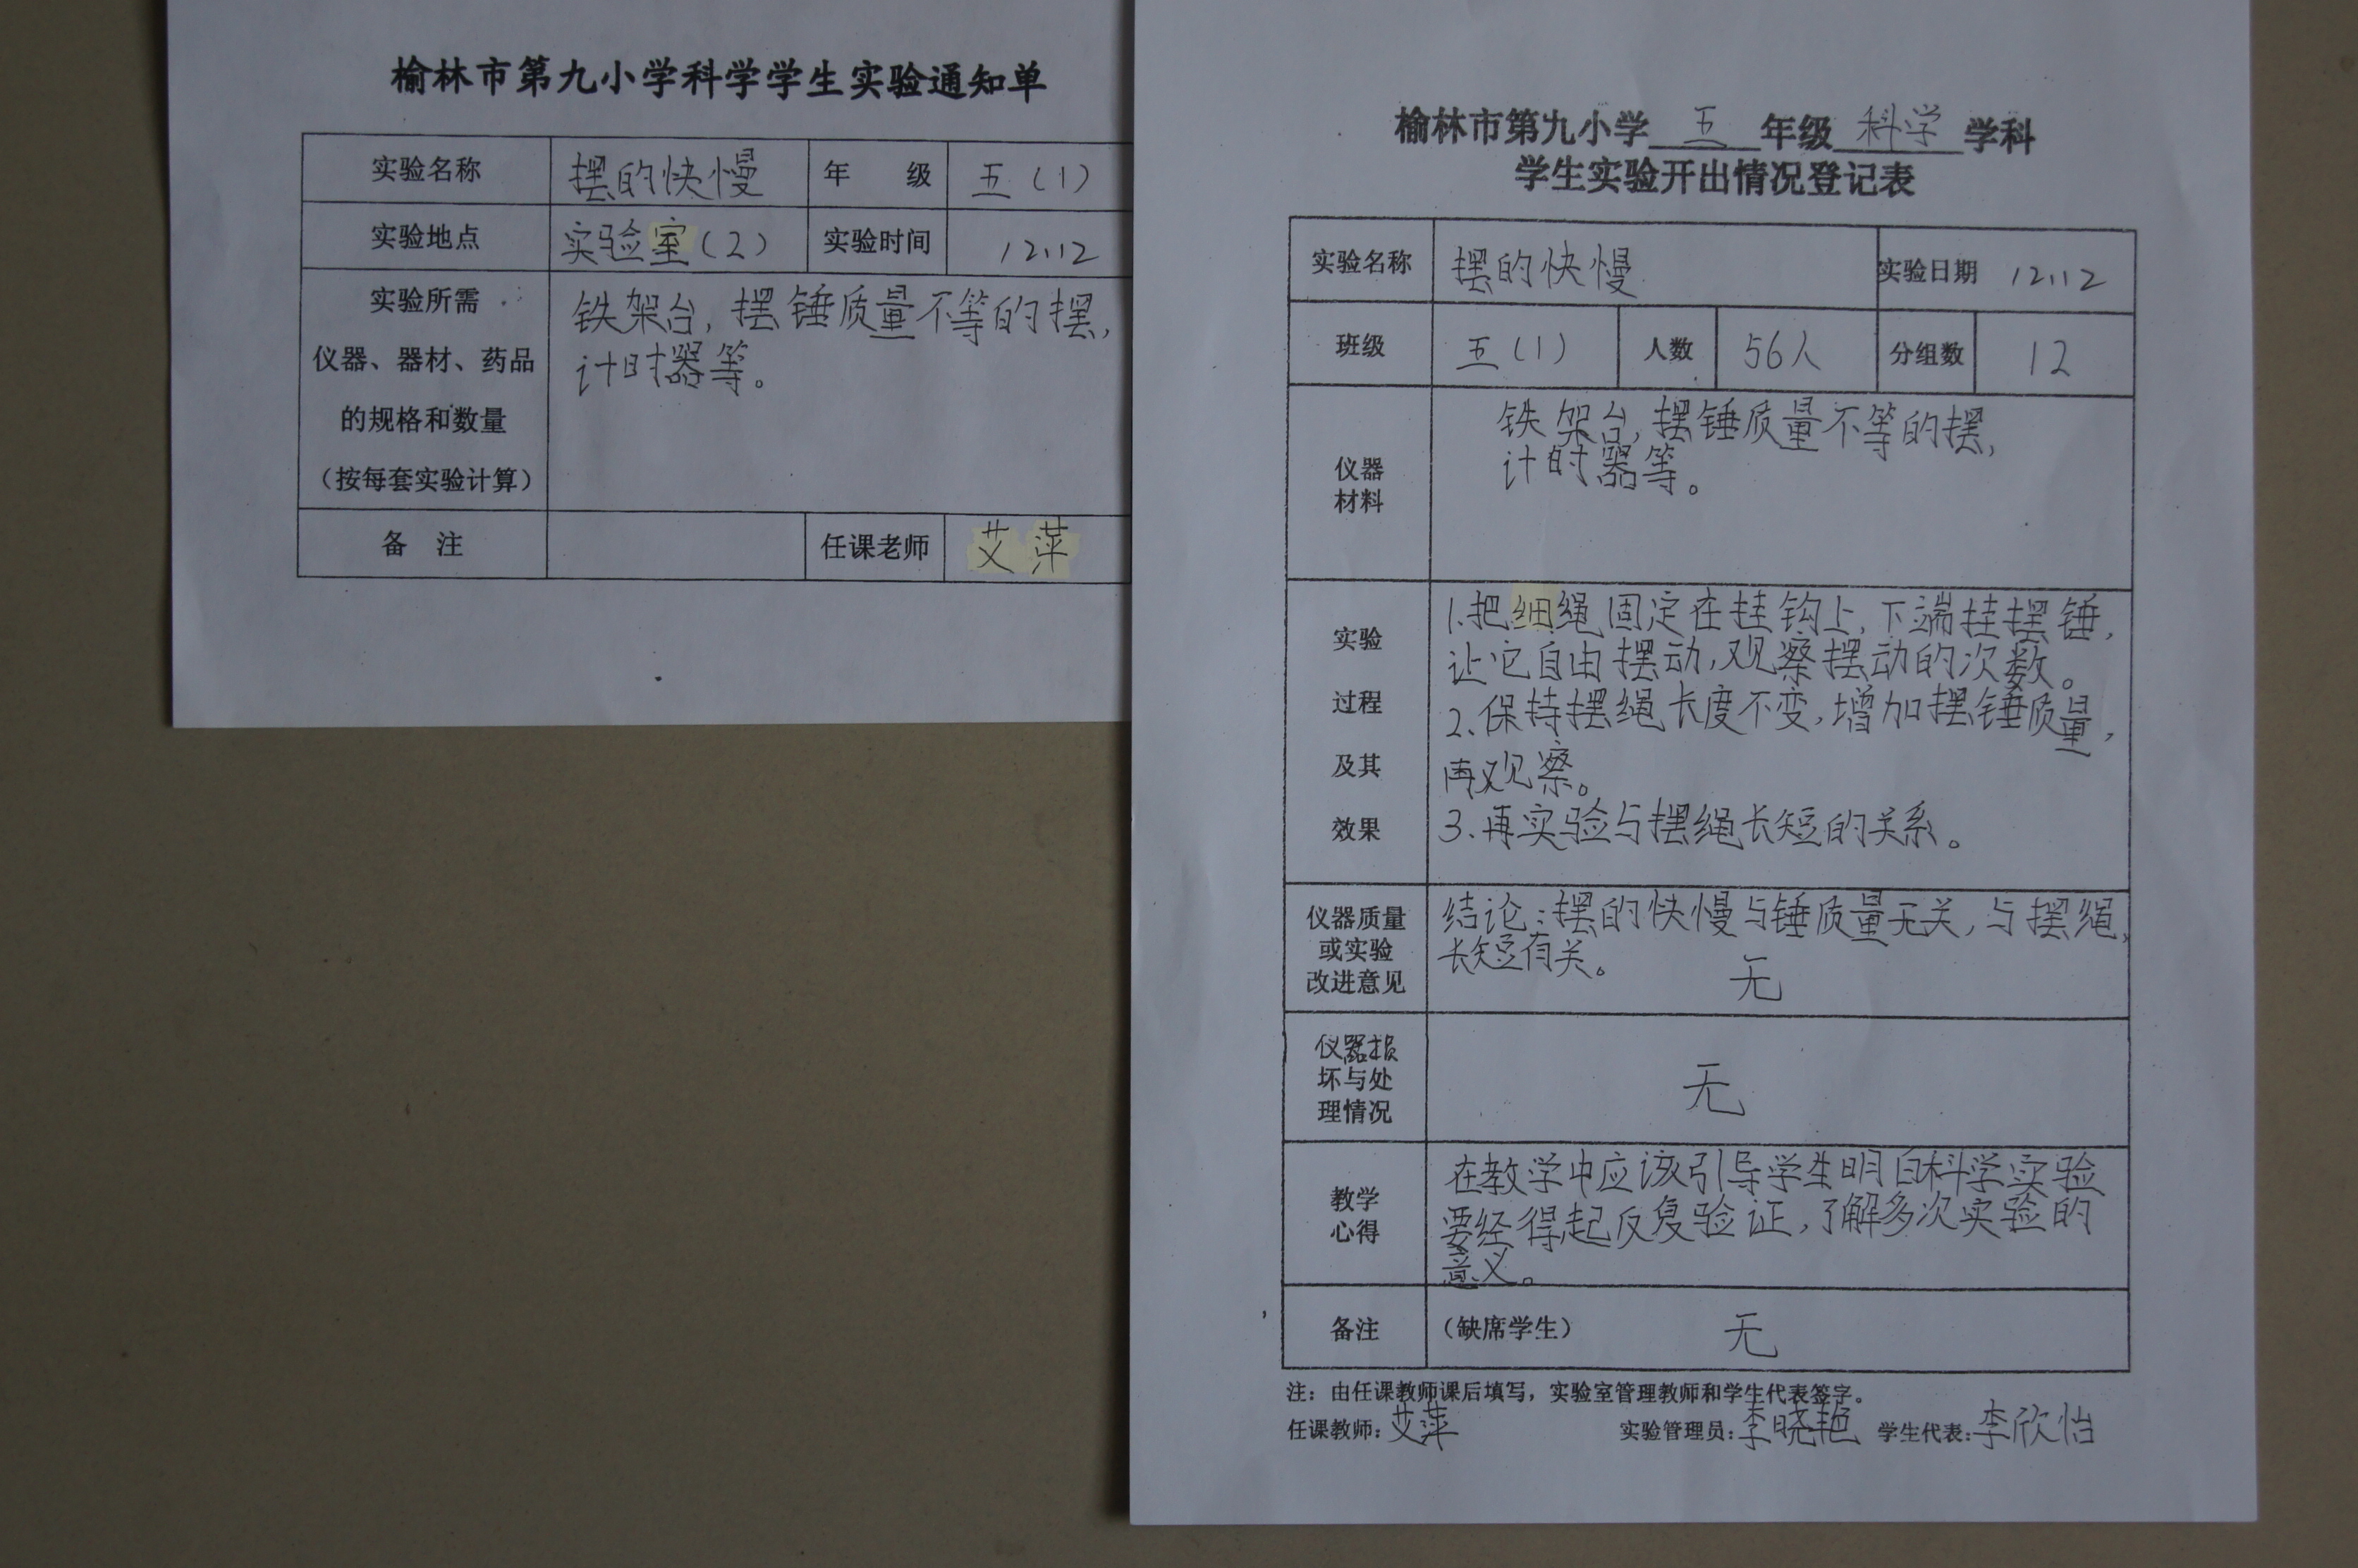 榆林市第九小学科学学生实验通知单
实验名称 摆的快慢 年 级 五（1）
实验地点 实验室（2） 实验时间 12.12
实验所需
仪器、器材、药品
的规格和数量
（按每套实验计算）
铁架台，摆锤质量不等的摆，
计时器等。
备 注 任课老师 艾萍
榆林市第九小学 五 年级 科学 学科
学生实验开出情况登记表
实验名称 摆的快慢 实验日期 12.12
班级 五（1） 人数 56人 分组数 12
仪器
材料
铁架台，摆锤质量不等的摆，
计时器等。
实验
过程
及其
效果
1.把细绳固定在挂钩上，下端挂摆锤，
让它自由摆动，观察摆动的次数。
2、保持摆绳长度不变，增加摆锤质量，
再观察。
3、再实验与摆绳长短的关系。
仪器质量
或实验
改进意见
结论：摆的快慢与锤质量无关，与摆绳
长短有关。 无
仪器损
坏与处
理情况
无
教学
心得
在教学中应该引导学生明白科学实验
要经得起反复验证，了解多次实验的
意义。
备注 （缺席学生） 无
注：由任课教师课后填写，实验室管理教师和学生代表签字。
任课教师：艾萍 实验管理员：李晓艳 学生代表：李欣怡